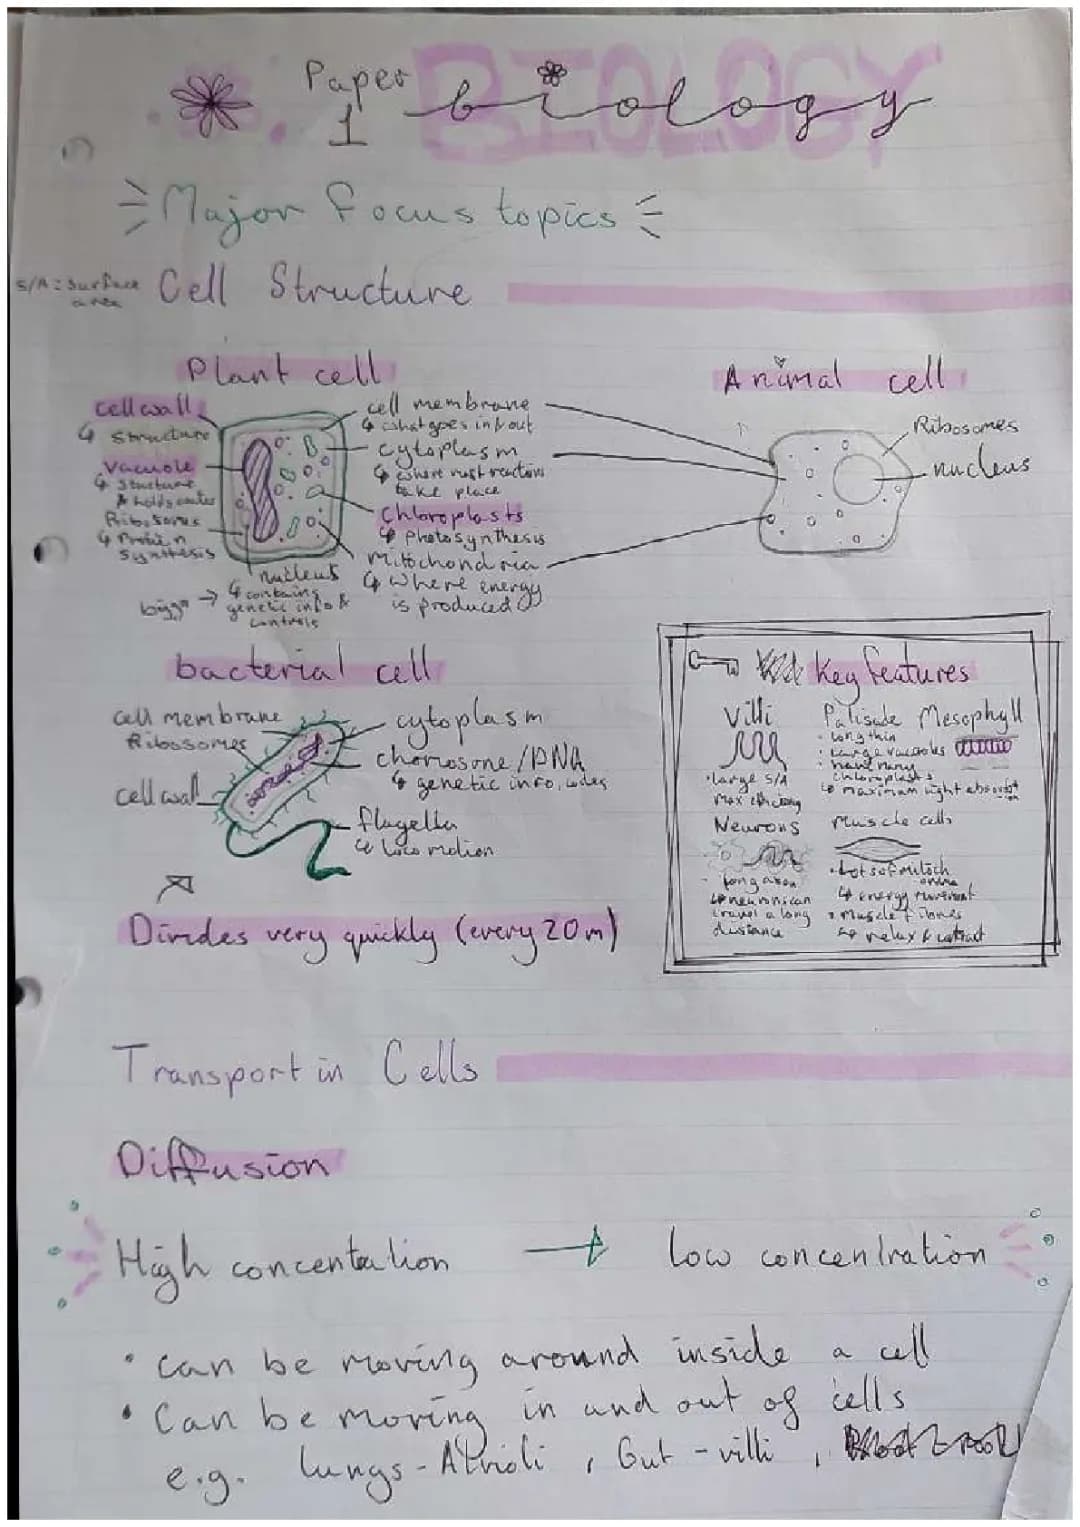 BIOLOGY
Paper 1 biology
Major focus topics
S/A: Surface area
Cell Structure
Plant cell
cell wall
↳ structure
Vacuole
↳ structure
& holds water
Ribosomes
↳ Protein
synthesis
nucleus
↳ contains
genetic info &
controls
cell membrane
↳ what goes in & out
cytoplasm
↳ where most reactions
take place
Chloroplasts
↳ Photosynthesis
Mitochondria
↳ where energy
is produced
Animal cell
Ribosomes
nucleus
bacterial cell
cell membrane
Ribosomes
cell wall
cytoplasm
chomosone / DNA
↳ genetic info, codes
flagella
↳ loco motion
Divides very quickly (every 20m)
Key features
Villi
• large S/A
max efficiency
Palisade Mesophyll
• long thin
• large vacuoles
• have many
chloroplasts
↳ maximum light absorbtion
Neurons
- long axon
↳ neurons can
travel a long
distance
Muscle cells
• Lots of mitoch
ondria
↳ energy movement
• muscle fibres
↳ relax & contract
Transport in Cells
Diffusion
High concentation → low concentration
• can be moving around inside a cell
• Can be moving in and out of cells
e.g. lungs - Alvioli, Gut - villi,